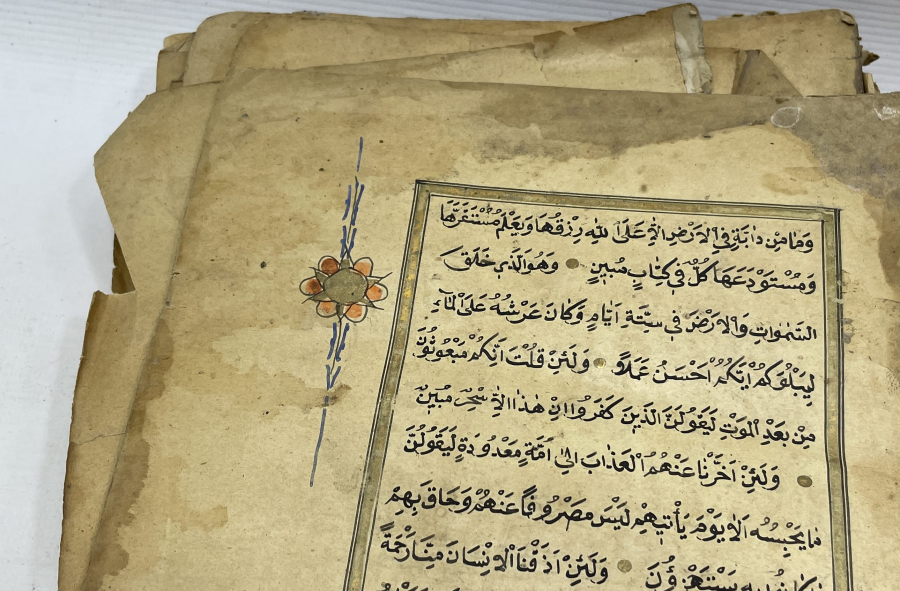 وَمَا مِنْ دَابَّةٍ فِي الْاَرْضِ اِلَّا عَلَى اللّٰهِ رِزْقُهَا وَيَعْلَمُ مُسْتَقَرَّهَا
وَمُسْتَوْدَعَهَا كُلٌّ فِي كِتَابٍ مُبِينٍ وَهُوَ الَّذِي خَلَقَ
السَّمٰوَاتِ وَالْاَرْضَ فِي سِتَّةِ اَيَّامٍ وَكَانَ عَرْشُهُ عَلَى الْمَاءِ
لِيَبْلُوَكُمْ اَيُّكُمْ اَحْسَنُ عَمَلًا وَلَئِنْ قُلْتَ اِنَّكُمْ مَبْعُوثُونَ
مِنْ بَعْدِ الْمَوْتِ لَيَقُولَنَّ الَّذِينَ كَفَرُوا اِنْ هٰذَا اِلَّا سِحْرٌ مُبِينٌ
وَلَئِنْ اَخَّرْنَا عَنْهُمُ الْعَذَابَ اِلٰى اُمَّةٍ مَعْدُودَةٍ لَيَقُولُنَّ
مَا يَحْبِسُهُ اَلَا يَوْمَ يَأْتِيهِمْ لَيْسَ مَصْرُوفًا عَنْهُمْ وَحَاقَ بِهِمْ
مَا كَانُوا بِهِ يَسْتَهْزِؤُنَ وَلَئِنْ اَذَقْنَا الْاِنْسَانَ مِنَّا رَحْمَةً